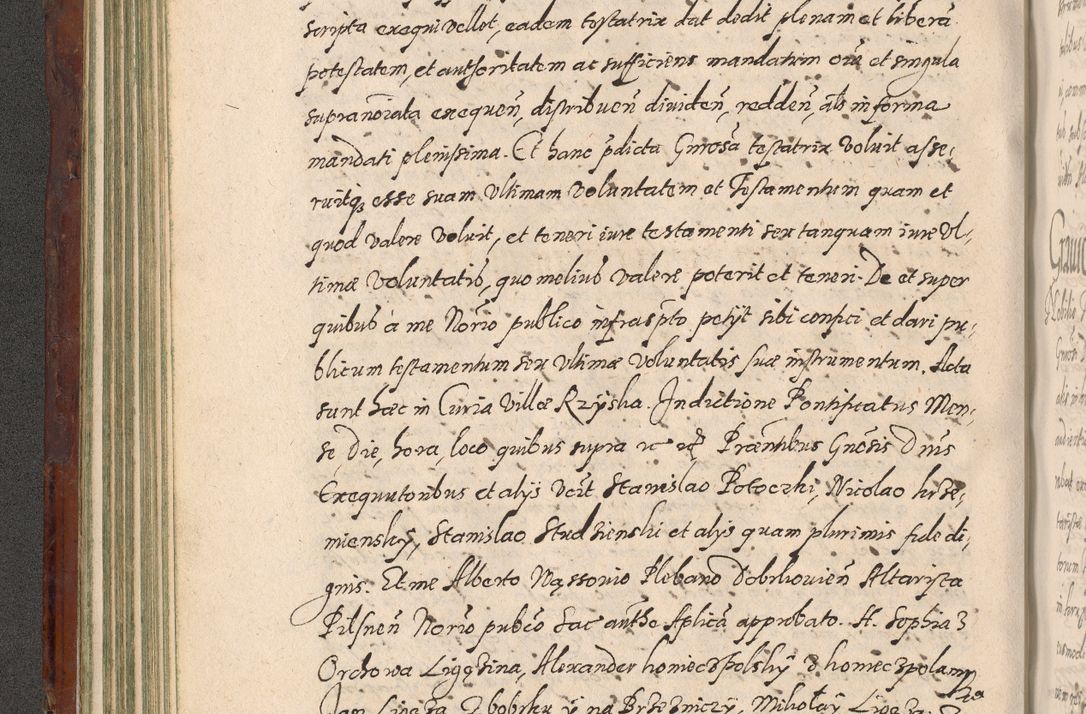 scripta exequi vellet, eadem testatrix dat dedit plenam et liberã
potestatem, et authoritatem ac sufficiens mandatum oĩa et singula
supranoĩata exequeñ, distribueñ dividen̄, redden̄, als in forma
mandati plenissima. Et hanc p̃dicta Gñrosã testatrix voluit asse,
ruitq̃ esse suam ultimam voluntatem et Testamentum quam et
quod valere voluit, et teneri iure testamenti seu tanquam iure Ul,
timæ voluntatis, quo melius valere poterit et teneri. De et super
quibus á me Norĩo publico infrasp̃to petÿt sibi confici et dari pu,
blicum testamentum seu ultimæ voluntatis suæ instrumentum. Acta
sunt hæc in Curia Villæ Rzÿska. Indictione Pontificatus Men,
se, Die, hora, loco quibus supra Præñtibus Gnõsis Dnĩs
Exequutoribus et alÿs vcĩt Stanislao Potoczki, Nicolao krze,
mienskÿ, Stanislao Studzienski et alÿs quam plurimis fide di,
gnis. Et me Alberto Wąssonio Plebano Dobrkovień Altarista
Pilsneñ Norĩo pubc̃o Sac authe Aplicã approbato. A. Sophia z
Orchowa Ligęzina, Alexander konieczpolskÿ z konieczpola
Jan Ligęza z bobrku ÿ na Przeniczÿ, Mikołaÿ Ligęza